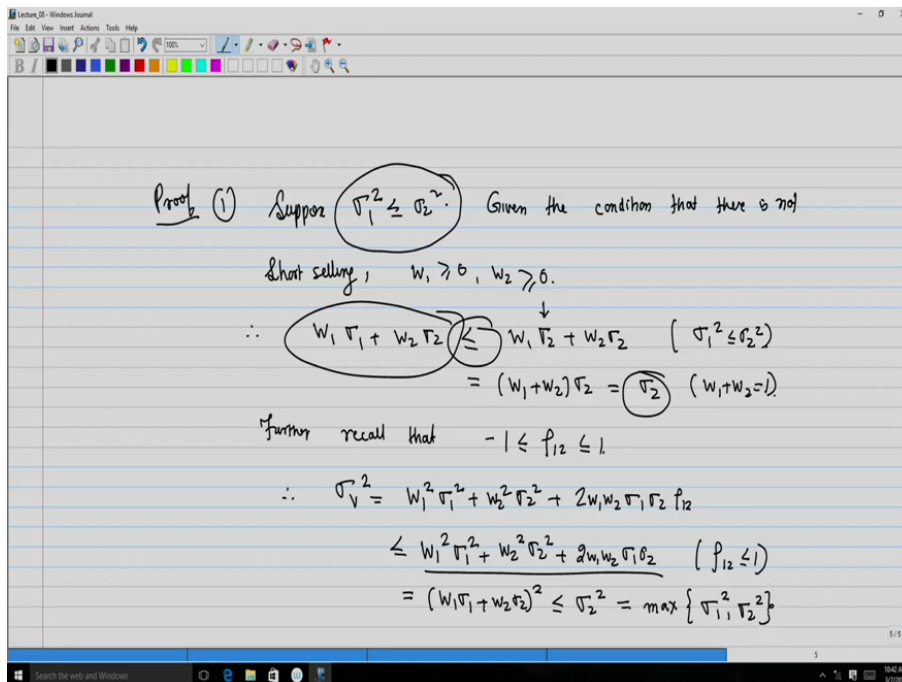 Lecture_08 - Windows Journal
File Edit View Insert Actions Tools Help
100%
B I
Proof ① Suppose σ₁² ≤ σ₂². Given the condition that there is not
Short selling, W₁ ≥ 0, W₂ ≥ 0.
∴ W₁σ₁ + W₂σ₂ ≤ W₁σ₂ + W₂σ₂ (σ₁² ≤ σ₂²)
= (W₁+W₂)σ₂ = σ₂ (W₁+W₂=1).
Further recall that -1 ≤ ρ₁₂ ≤ 1.
∴ σ_V² = W₁²σ₁² + W₂²σ₂² + 2W₁W₂σ₁σ₂ρ₁₂
≤ W₁²σ₁² + W₂²σ₂² + 2W₁W₂σ₁σ₂ (ρ₁₂ ≤ 1)
= (W₁σ₁ + W₂σ₂)² ≤ σ₂² = max{σ₁², σ₂²}.
5/5
5
Search the web and Windows
10:42 A